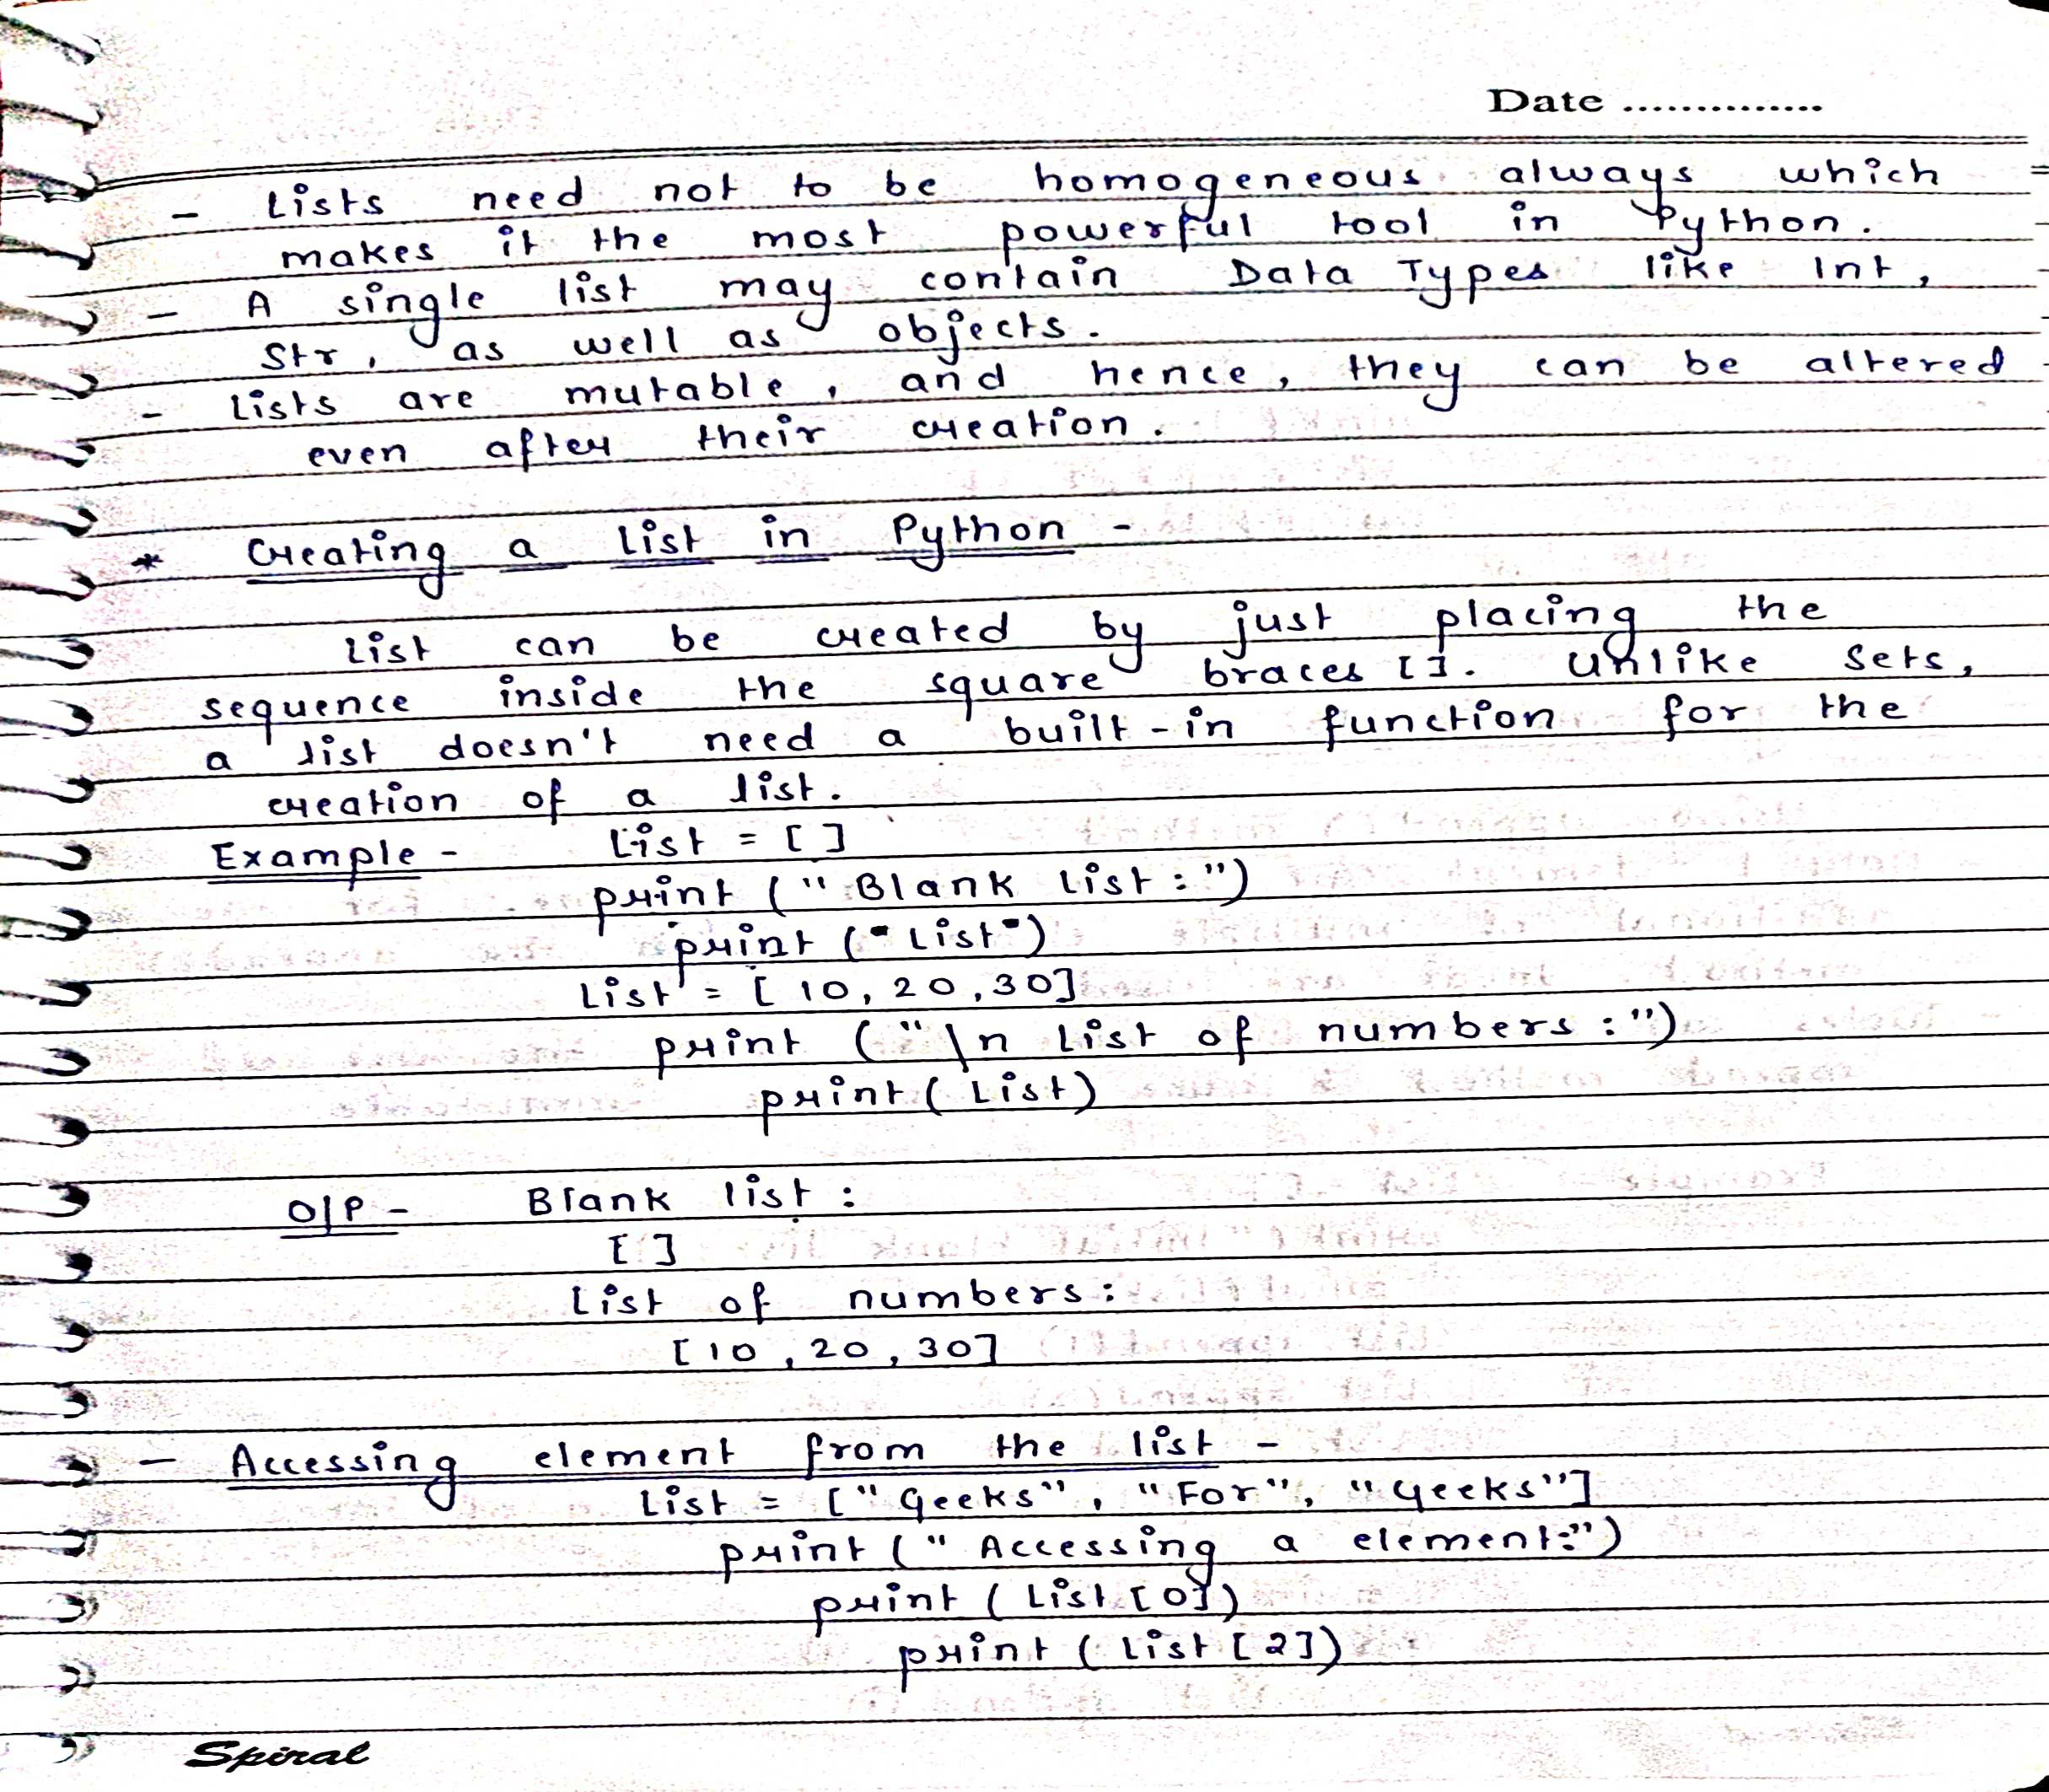 Date ..............
- Lists need not to be homogeneous always which
makes it the most powerful tool in Python.
- A single list may contain Data Types like Int,
Str, as well as objects.
- Lists are mutable, and hence, they can be altered
even after their creation.
* Creating a List in Python -
List can be created by just placing the
sequence inside the square braces []. Unlike Sets,
a list doesn't need a built-in function for the
creation of a list.
Example - List = []
print ("Blank List:")
print ("List")
List = [10, 20, 30]
print ("\n List of numbers:")
print (List)
O/P - Blank list:
[]
List of numbers:
[10, 20, 30]
- Accessing element from the list -
List = ["Geeks", "For", "Geeks"]
print ("Accessing a element:")
print (List [0])
print (List [2])
Spiral